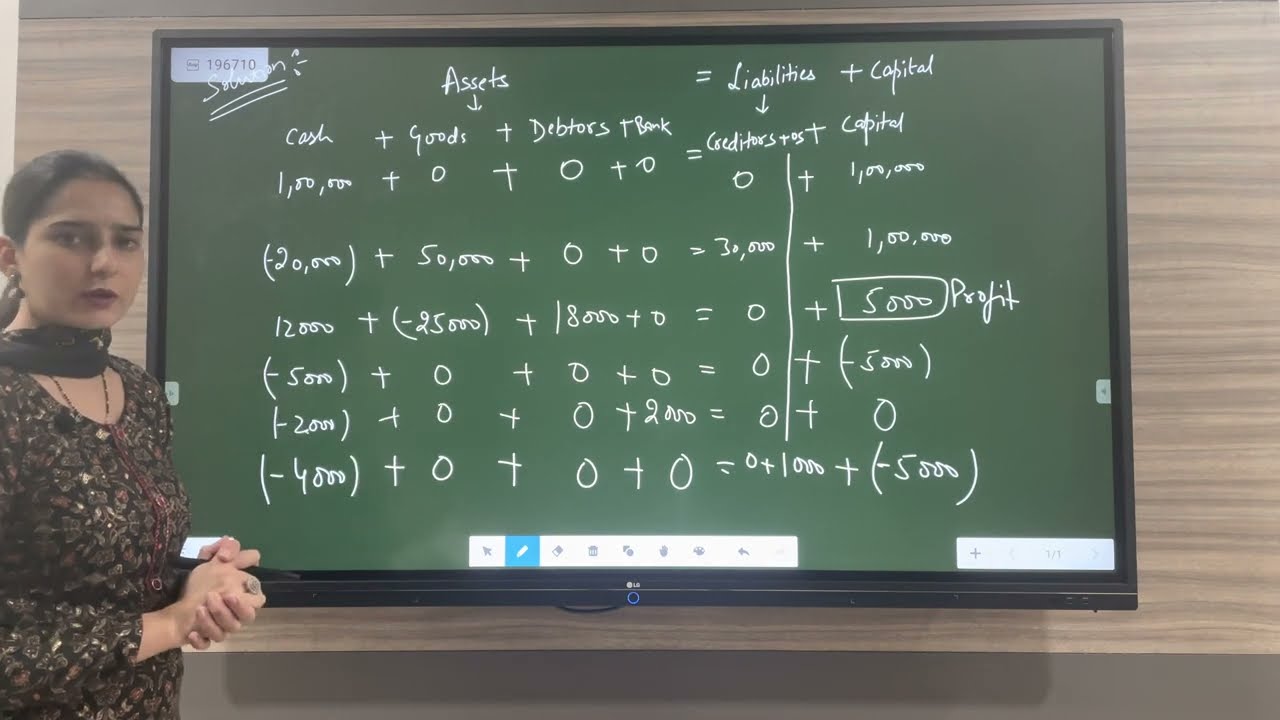 196710
Solution :-
Assets = Liabilities + Capital
Cash + Goods + Debtors + Bank = Creditors + os + Capital
1,00,000 + 0 + 0 + 0 = 0 + 1,00,000
(-20,000) + 50,000 + 0 + 0 = 30,000 + 1,00,000
12000 + (-25000) + 18000 + 0 = 0 + 5000 Profit
(-5000) + 0 + 0 + 0 = 0 + (-5000)
(-2000) + 0 + 0 + 2000 = 0 + 0
(-4000) + 0 + 0 + 0 = 0 + 1000 + (-5000)
1/1
LG